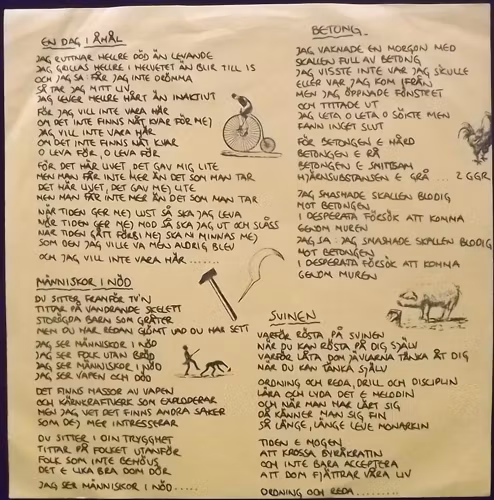 EN DAG I ÅHÅL
JAG RUTTNAR HELLRE DÖD ÄN LEVANDE
JAG GRILLAS HELLRE I HELVETET ÄN BLIR TILL IS
OCH JAG SA FÅR JAG INTE DRÖMMA
SÅ TAR JAG MITT LIV
JAG LEVER HELLRE HÅRT ÄN INAKTIVT
FÖR JAG VILL INTE VARA HÄR
OM DET INTE FINNS NÅT KVAR FÖR MEJ
JAG VILL INTE VARA HÄR
OM DET INTE FINNS NÅT KVAR
O LEVA FÖR, O LEVA FÖR
FÖR DET HÄR LIVET DET GAV MIG LITE
MEN MAN FÅR INTE MER ÄN DET SOM MAN TAR
DET HÄR LIVET, DET GAV MEJ LITE
MEN MAN FÅR INTE MER ÄN DET SOM MAN TAR
NÄR TIDEN GER MEJ LUST SÅ SKA JAG LEVA
NÄR TIDEN GER MEJ MOD SÅ SKA JAG UT OCH SLÅSS
NÄR TIDEN GÅTT FÖRBI MEJ SKA NI MINNAS MEJ
SOM DEN JAG VILLE VA MEN ALDRIG BLEV
OCH JAG VILL INTE VARA HÄR........
MÄNNISKOR I NÖD
DU SITTER FRAMFÖR TV'N
TITTAR PÅ VANDRANDE SKELETT
STORÖGDA BARN SOM GRÅTER
MEN DU HAR REDAN GLÖMT VAD DU HAR SETT
JAG SER MÄNNISKOR I NÖD
JAG SER FOLK UTAN BRÖD
JAG SER MÄNNISKOR I NÖD
JAG SER VAPEN OCH DÖD
DET FINNS MASSOR AV VAPEN
OCH KÄRNKRAFTVERK SOM EXPLODERAR
MEN JAG VET DET FINNS ANDRA SAKER
SOM DEJ MER INTRESSERAR
DU SITTER I DIN TRYGGHET
TITTAR PÅ FOLKET UTANFÖR
FOLK SOM INTE BEHÖVS
DET E LIKA BRA DOM DÖR
JAG SER MÄNNISKOR I NÖD......
BETONG
JAG VAKNADE EN MORGON MED
SKALLEN FULL AV BETONG
JAG VISSTE INTE VAR JAG SKULLE
ELLER VAR JAG KOM IFRÅN
MEN JAG ÖPPNADE FÖNSTRET
OCH TITTADE UT
JAG LETA O LETA O SÖKTE MEN
FANN INGET SLUT
FÖR BETONGEN E HÅRD
BETONGEN E RÅ
BETONGEN E SMITTSAM
HJÄRNSUBSTANSEN E GRÅ... 2 GGR.
JAG SMASHADE SKALLEN BLODIG
MOT BETONGEN
I DESPERATA FÖRSÖK ATT KOMMA
GENOM MUREN
JAG SA JAG SMASHADE SKALLEN BLODIG
MOT BETONGEN
I DESPERATA FÖRSÖK ATT KOMMA
GENOM MUREN
SVINEN
VARFÖR RÖSTA PÅ SVINEN
NÄR DU KAN RÖSTA PÅ DIG SJÄLV
VARFÖR LÅTA DOM JÄVLARNA TÄNKA ÅT DIG
NÄR DU KAN TÄNKA SJÄLV
ORDNING OCH REDA, DRILL OCH DISCIPLIN
LÄRA OCH LYDA DET E MELODIN
OCH NÄR MAN HAR LÄRT SIG
DÅ KÄNNER MAN SIG FIN
SÅ LÄNGE, LÄNGE LEVE MONARKIN
TIDEN E MOGEN
ATT KROSSA BYRÅKRATIN
OCH INTE BARA ACCEPTERA
ATT DOM FJÄTTRAR VÅRA LIV
ORDNING OCH REDA........